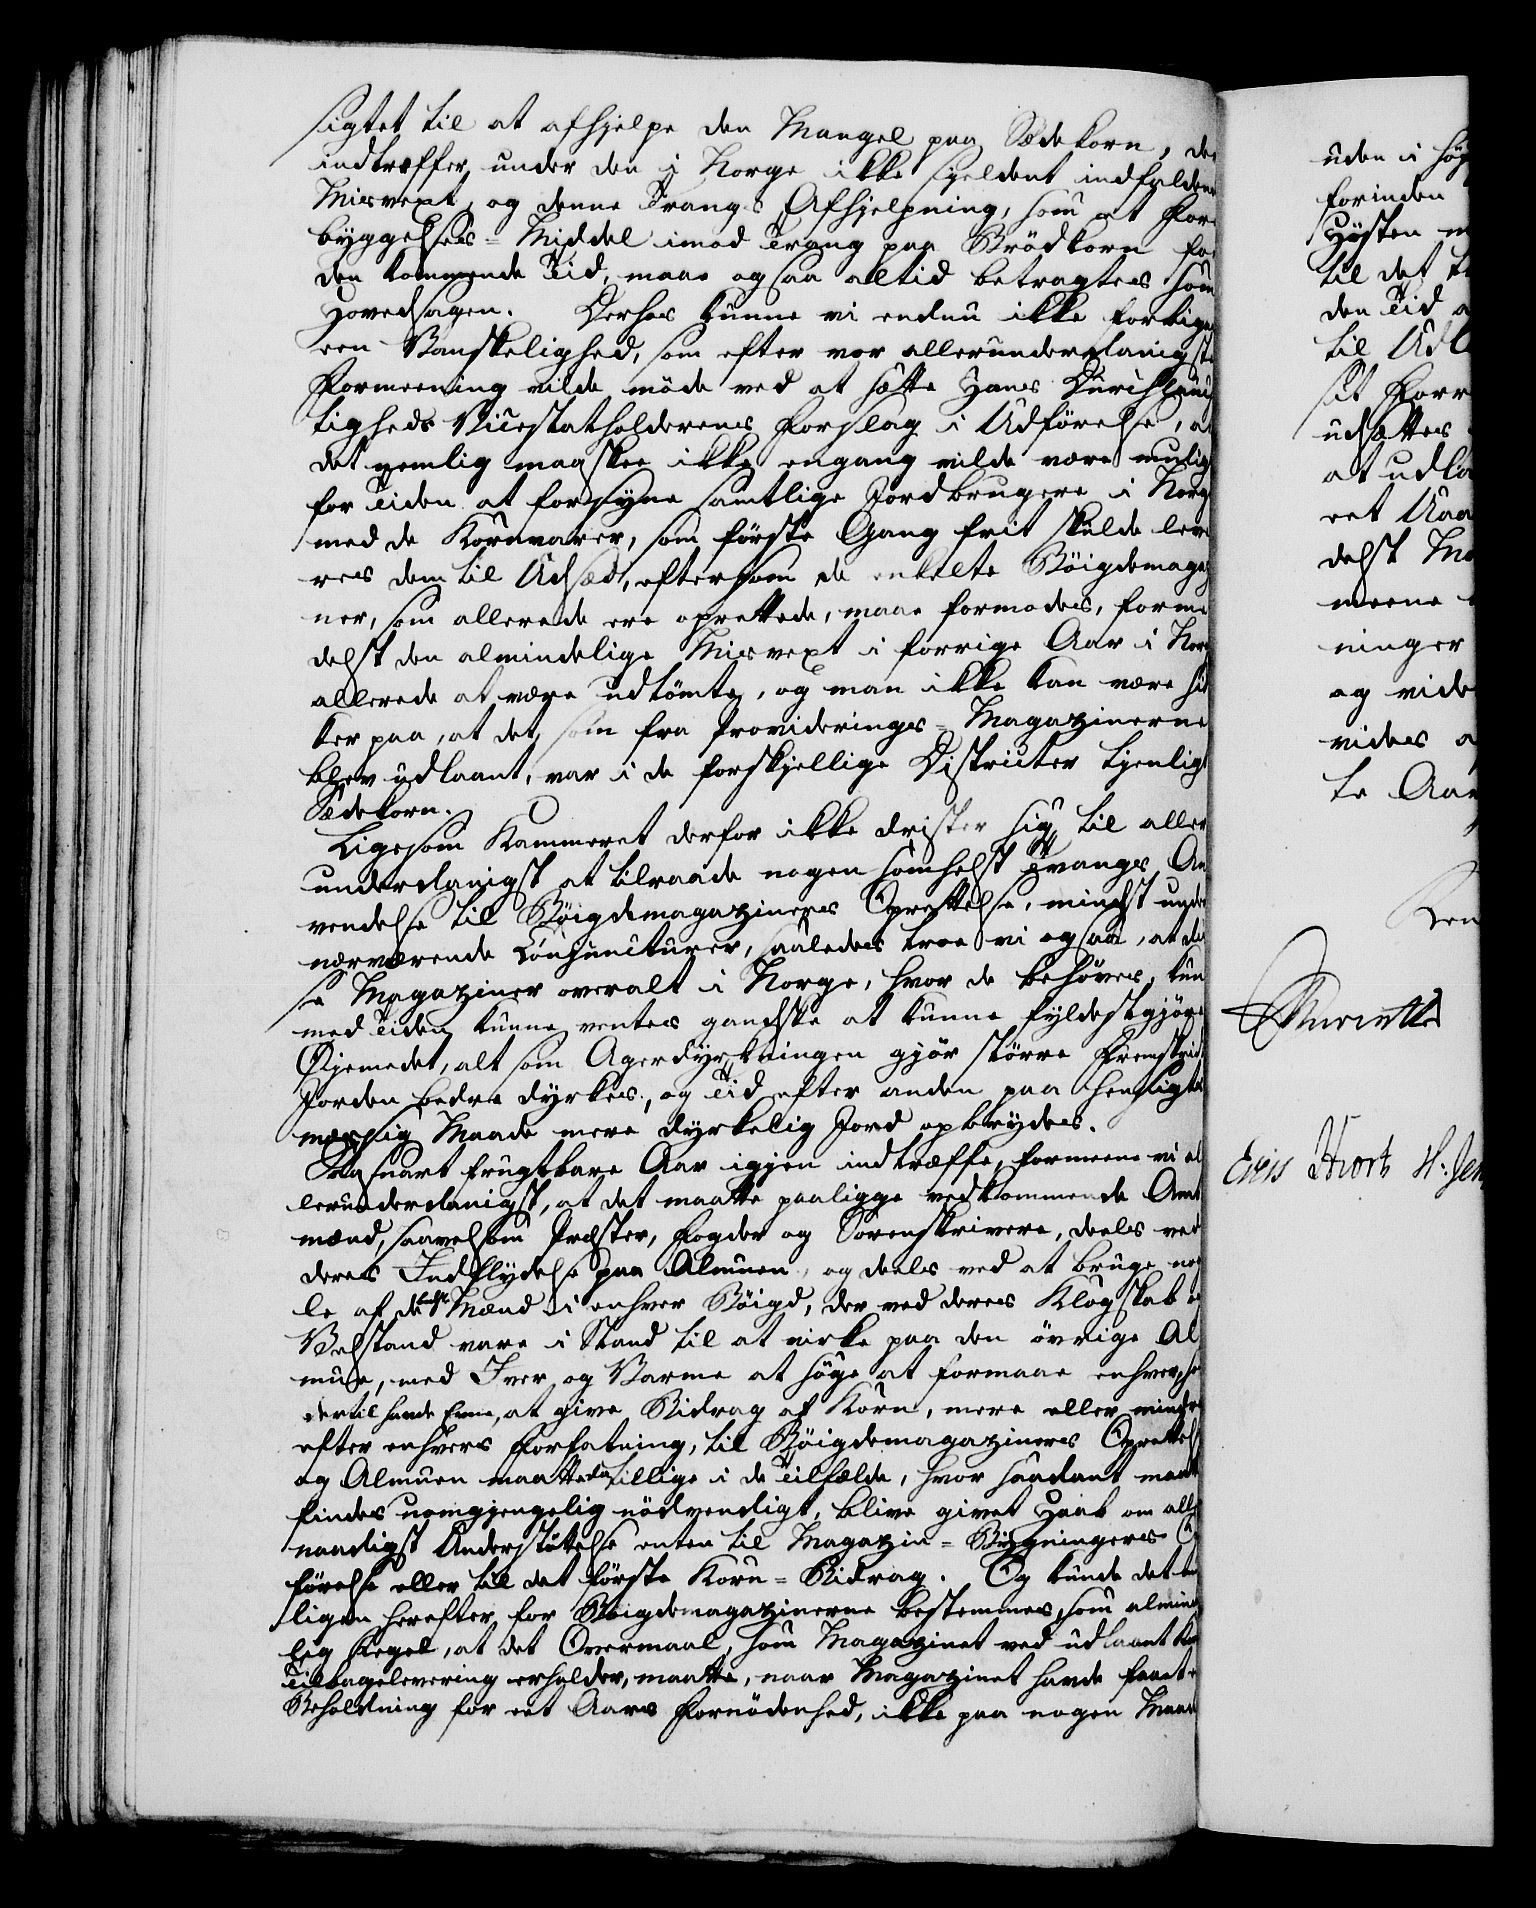 sigtet til at afhjelpe den Mangel paa Sædekorn, der
indtræffer under den i Norge ikke sjeldent indfaldene
Misvext, og denne Trangs Afhjelpning, som et Fore
byggelses-Middel imod Trang paa Brödkorn for
den kommende Tid, maae ogsaa altid betragtes som
Hovedsagen. Derhos kunne vi endnu ikke fortige
een Vanskelighed, som efter vor allerunderdanigste
Formeening vilde möde ved at sætte Hans Durchlauch
tigheds Vicestatholderens Forslag i Udförelse, at
det nemlig maaskee ikke engang vilde være mulig
for Tiden at forsyne samtlige Jordbrugere i Norge
med de Kornvarer, som första Gang frit skulde leve
res dem til Udsæd, eftersom de enkelte Böigdemagazi
ner, som allerede ere oprettede, maae formodes, forme
delst den almindelige Misvext i forrige Aar i Norge
allerede at være udtömte, og man ikke kan være sik
ker paa, at det, som fra Provideringes-Magazinerne
blev udlaant, var i de forskjellige Districter tjenligt
Sædekorn.
Ligesom Kammeret derfor ikke drister sig til aller
underdanigst at tilraade nogen somhelst Tvangs An
vendelse til Böigdemagaziners Oprettelse, mindst under
nærværende Conjuncturer, saaledes troe vi ogsaa, at dis
se Magaziner overalt i Norge, hvor de behöves, kun
med Tiden kunne ventes gandske at kunne fyldestgjöre
Øjemedet, alt som Agerdyrkningen gjör större Fremskrid
Jorden bedre dyrkes, og Tid efter anden paa hensigts
mæssig Maade mere dyrkelig Jord opbrydes.
Saasnart frugtbare Aar igjen indtræffe, formeene vi al
lerunderdanigst, at det maatte paaligge vedkommende Amt
mænd, saavelsom Præster, Fogder og Sorenskrivere, deels ved
deres Indflydelse paa Almuen, og deels ved at bruge nog
le af de Mænd i enhver Böigd, der ved deres Klogskab og
Velstand vare i Stand til at virke paa den övrige Al
mue, med Iver og Varme at söge at formaae enhver, som
dertil havde Evne, at give Bidrag af Korn, mere eller mindre
efter enhvers Forfatning, til Böigdemagaziners Oprettelse
og Almuen maatte da tillige i de Tilfælde, hvor saadant maatte
findes uomgjengelig nödvendigt, blive givet Haab om aller
naadigst Understöttelse enten til Magazin-Bygningers Op
förelse eller til det första Korn-Bidrag. Og kunde det en
ligen herefter for Böigdemagazinerne bestemmes, som alminde
lig Regel, at det Overmaal, som Magazinet ved udlaant Korns
Tilbagelevering erholder, maatte, naar Magazinet havde faaet en
Beholdning for eet Aars Fornödenhed, ikke paa nogen Maade
uden i hög
forinden
Hösten
til det
den Tid
til Udl
sit Forr
udsættes
at udla
eet Aar
delst Ma
meene
ninger
og vide
vides
te Aar
Ren
Evers Hvorts H. Jen